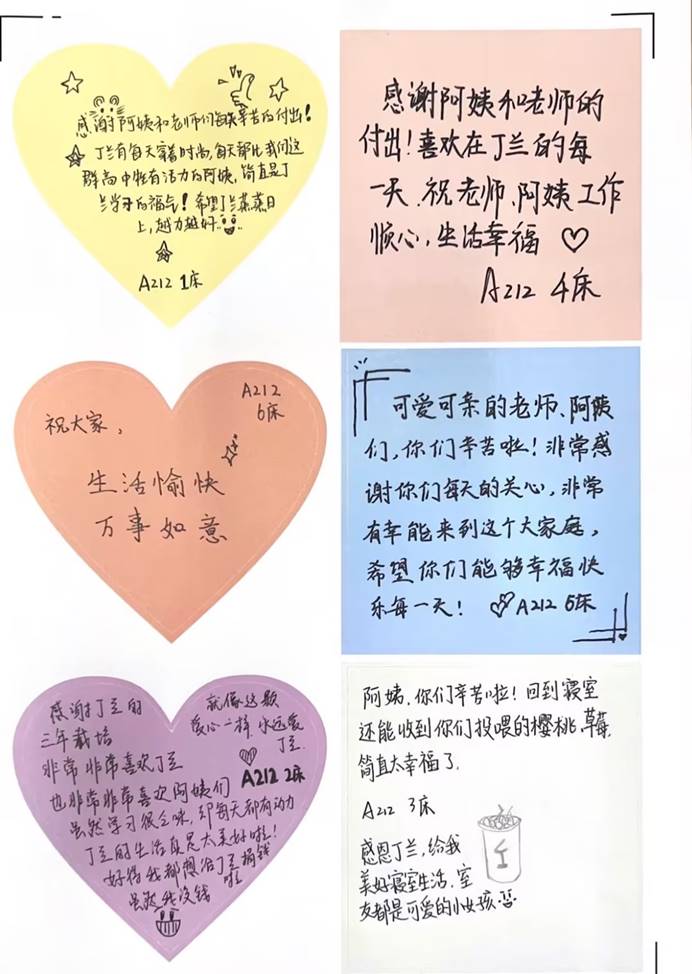 感谢阿姨和老师们每天辛苦的付出!
丁兰有每天穿着时尚,每天都比我们这
群高中牲有活力的阿姨,简直是丁
兰学子的福气!希望丁兰蒸蒸日
上,越力越好
A212 1床
感谢阿姨和老师的
付出!喜欢在丁兰的每
一天.祝老师、阿姨工作
顺心,生活幸福
A212 4床
A212
6床
祝大家,
生活愉快
万事如意
可爱可亲的老师、阿姨
们,你们辛苦啦!非常感
谢你们每天的关心,非常
有幸能来到这个大家庭,
希望你们能够幸福快
乐每一天! A212 5床
感谢丁兰的
三年栽培
非常非常喜欢丁兰
也非常非常喜欢阿姨们
虽然学习很乏味,却每天都有动力
丁兰的生活真是太美好啦!
好得我都想给丁兰捐钱
啦
虽然我没钱
就像这颗
爱心一样 永远爱
丁兰
A212 2床
阿姨,你们辛苦啦!回到寝室
还能收到你们投喂的樱桃,草莓
简直太幸福了.
A212 3床
感恩丁兰,给我
美好寝室生活.室
友都是可爱的小女孩